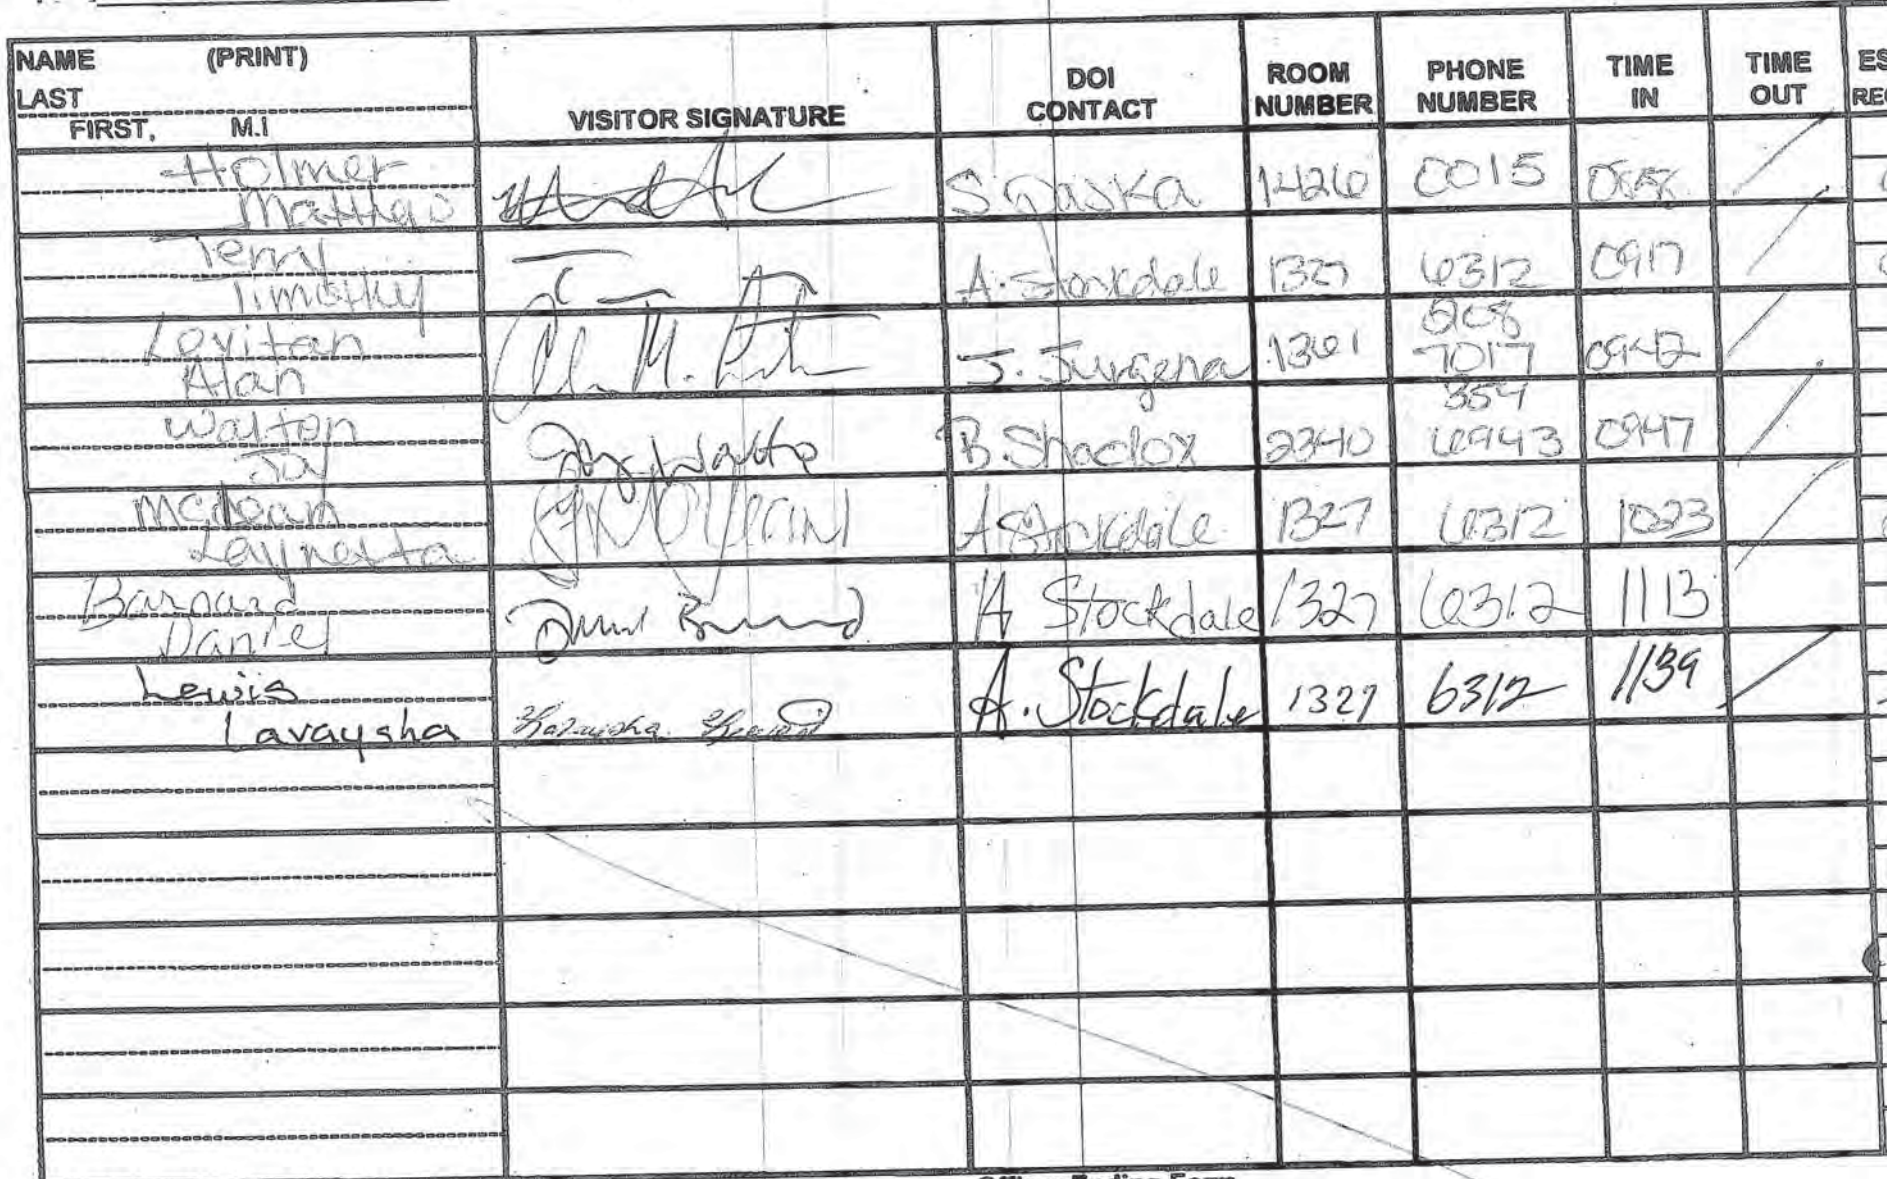 NAME (PRINT)
LAST
FIRST, M.I
VISITOR SIGNATURE
DOI
CONTACT
ROOM
NUMBER
PHONE
NUMBER
TIME
IN
TIME
OUT
ES
REC
Holmer
S. Gaska 1426 0015
Terry
Timothy
A. Stockdale 1327 6312 0917
Levitan
Alan
J. Jurgena 1361 208
7017 0942
Walton
Joy
Joy Walto B. Shadox 2340 354
6943 0947
McLean
A Stockdale 1327 6312 1023
Barnard
Daniel
A Stockdale 1327 6312 1113
Lewis
Lavaysha
Lavaysha A. Stockdale 1327 6312 1139